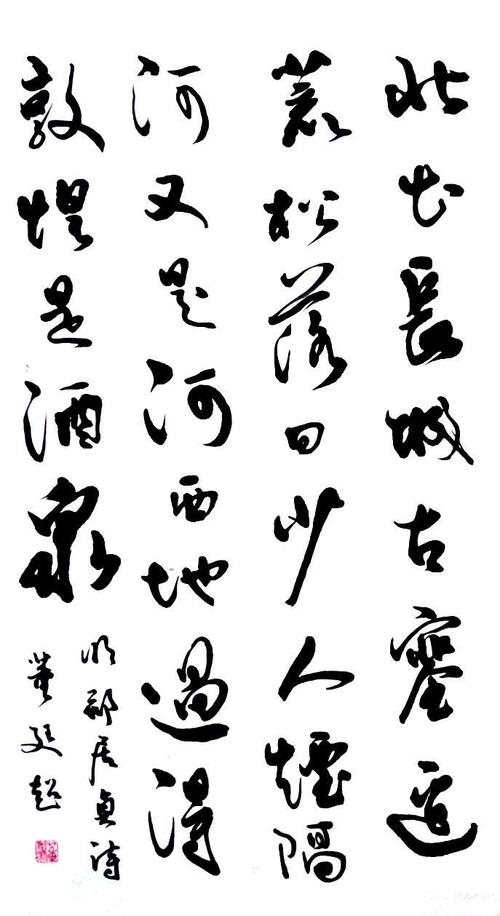 北出長城古塞邊
荒松落日少人煙隔
河又是河西地過得
敦煌是酒泉
明鄭居貞詩
董廷超